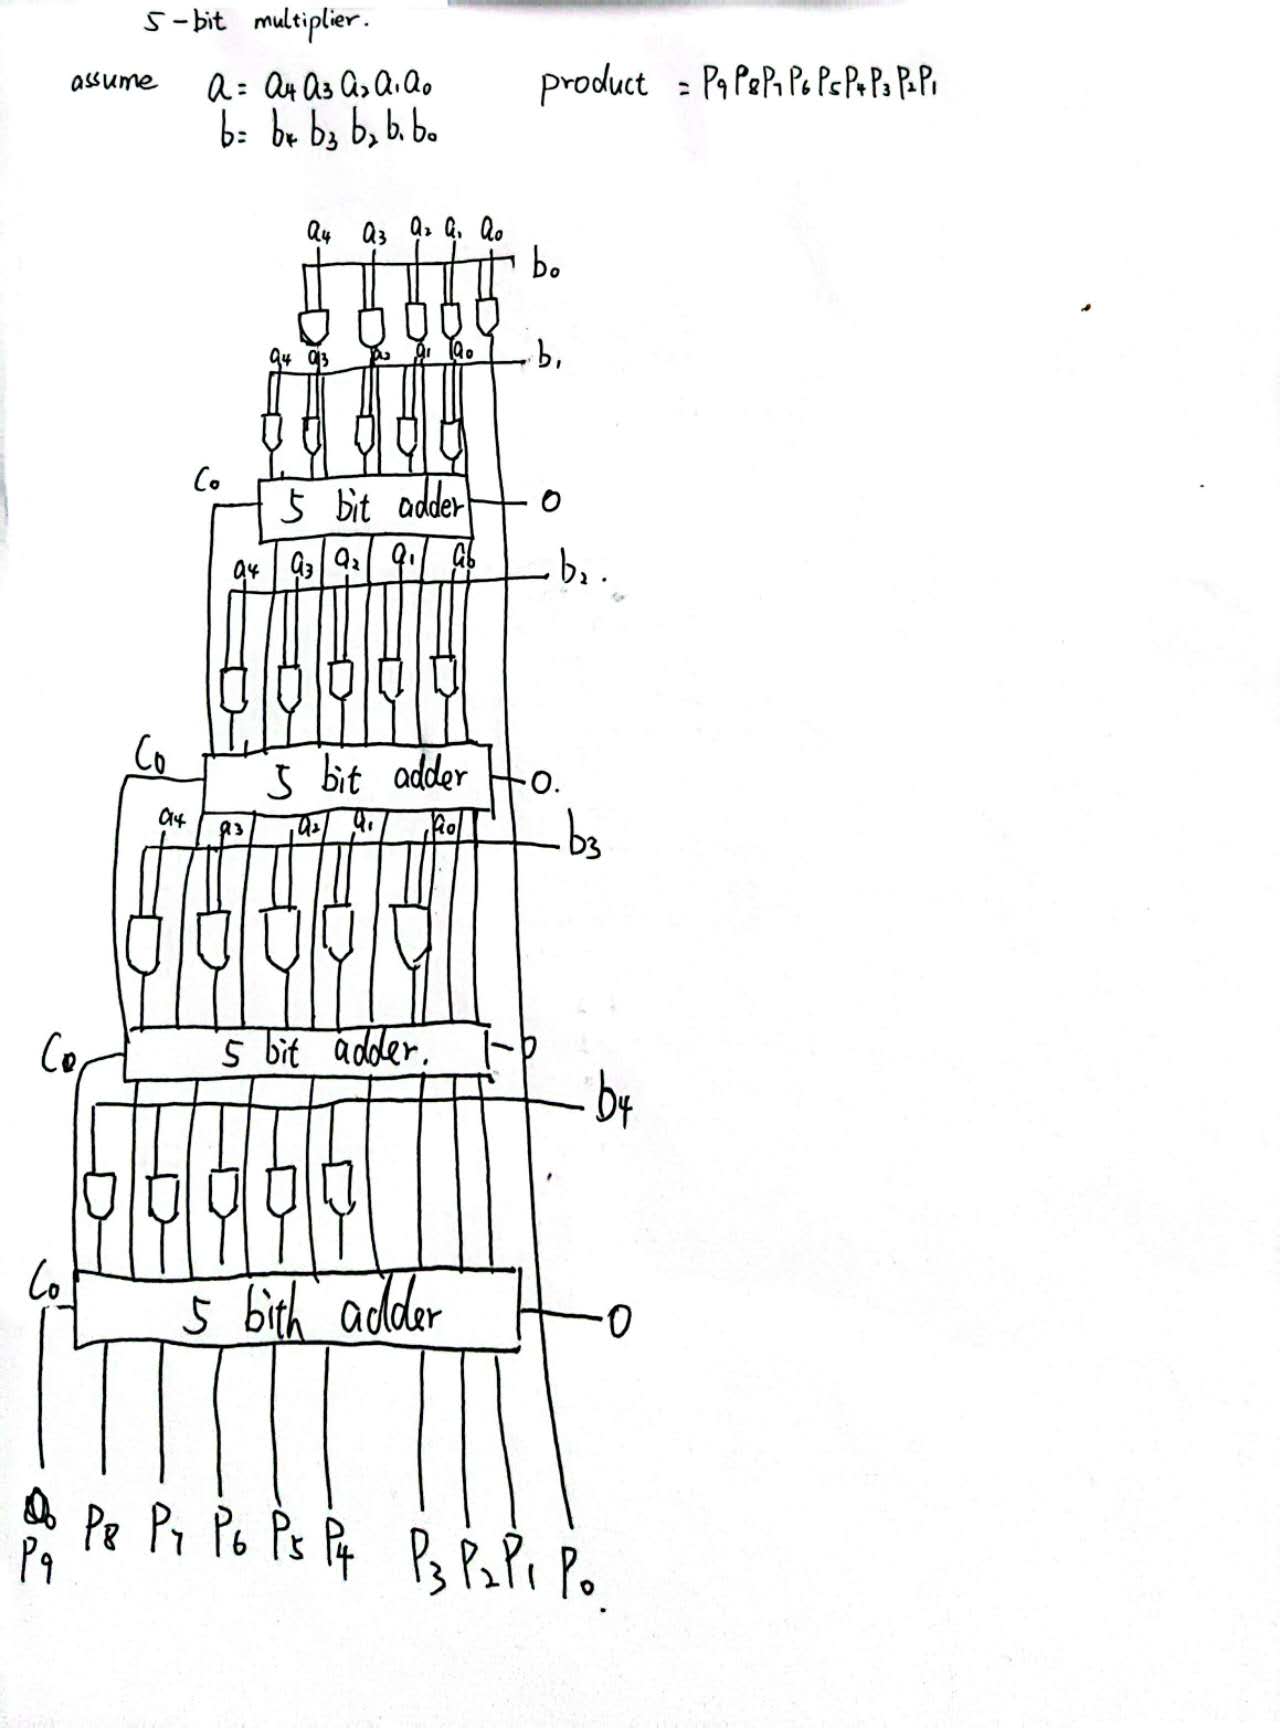 5-bit multiplier.
assume a = a4 a3 a2 a1 a0 product = P9 P8 P7 P6 P5 P4 P3 P2 P1
b = b4 b3 b2 b1 b0
a4 a3 a2 a1 a0
b0
a4 a3 a2 a1 a0 b1
C0 5 bit adder 0
a4 a3 a2 a1 a0 b2.
C0 5 bit adder 0.
a4 a3 a2 a1 a0 b3
C0 5 bit adder. 0
b4
C0 5 bith adder 0
P9 P8 P7 P6 P5 P4 P3 P2 P1 P0.